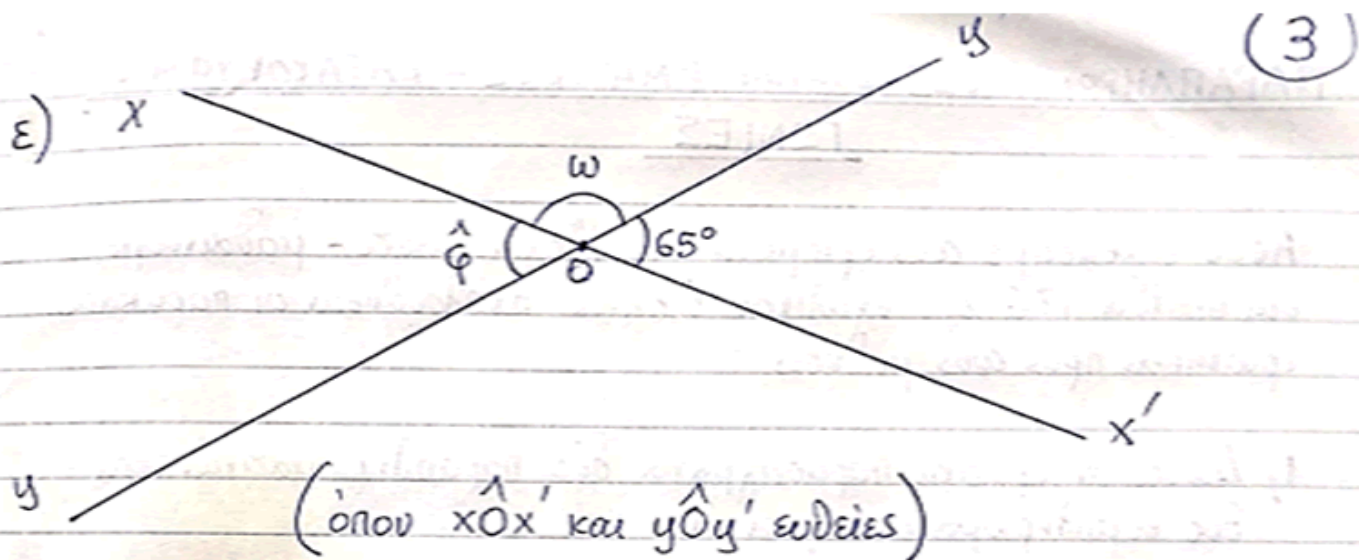 3
ε) x
y'
ω
φ̂ 65°
O
x'
y
(όπου xÔx' και yÔy' ευθείες)